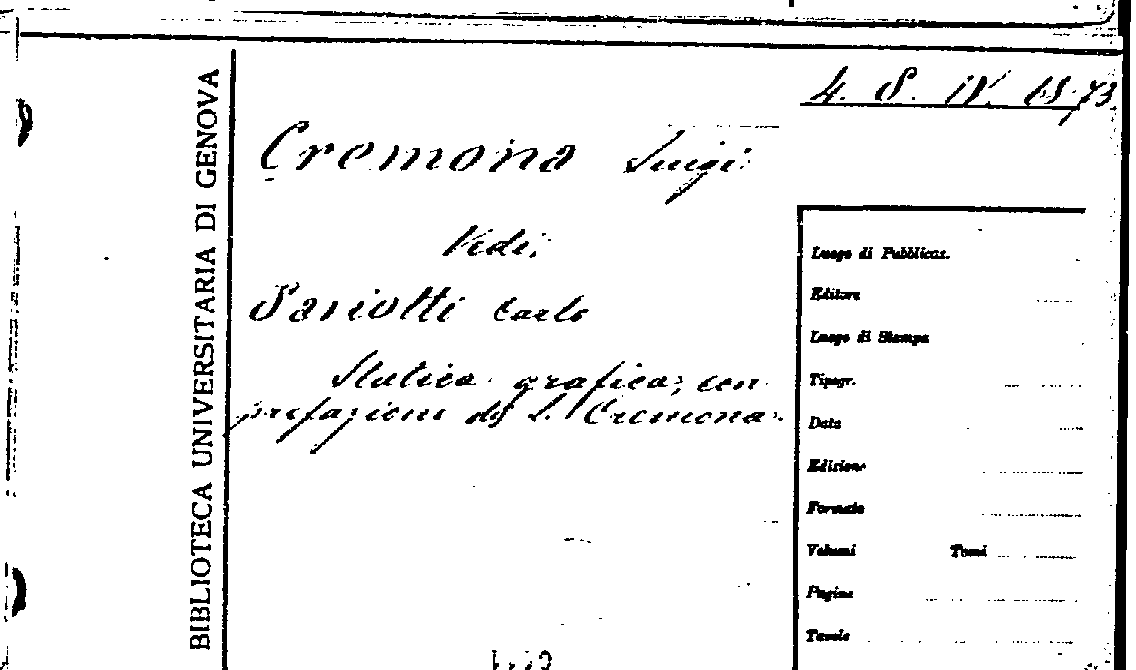 4. S. IV. 68-73
BIBLIOTECA UNIVERSITARIA DI GENOVA
Cremona Luigi
Vedi:
Sariotti Carlo
Statica grafica; con
prefazione di L. Cremona.
Luogo di Pubblicaz.
Editore
Luogo di Stampa
Tipogr.
Data
Edizione
Formato
Volumi Tomi
Pagine
Tavole